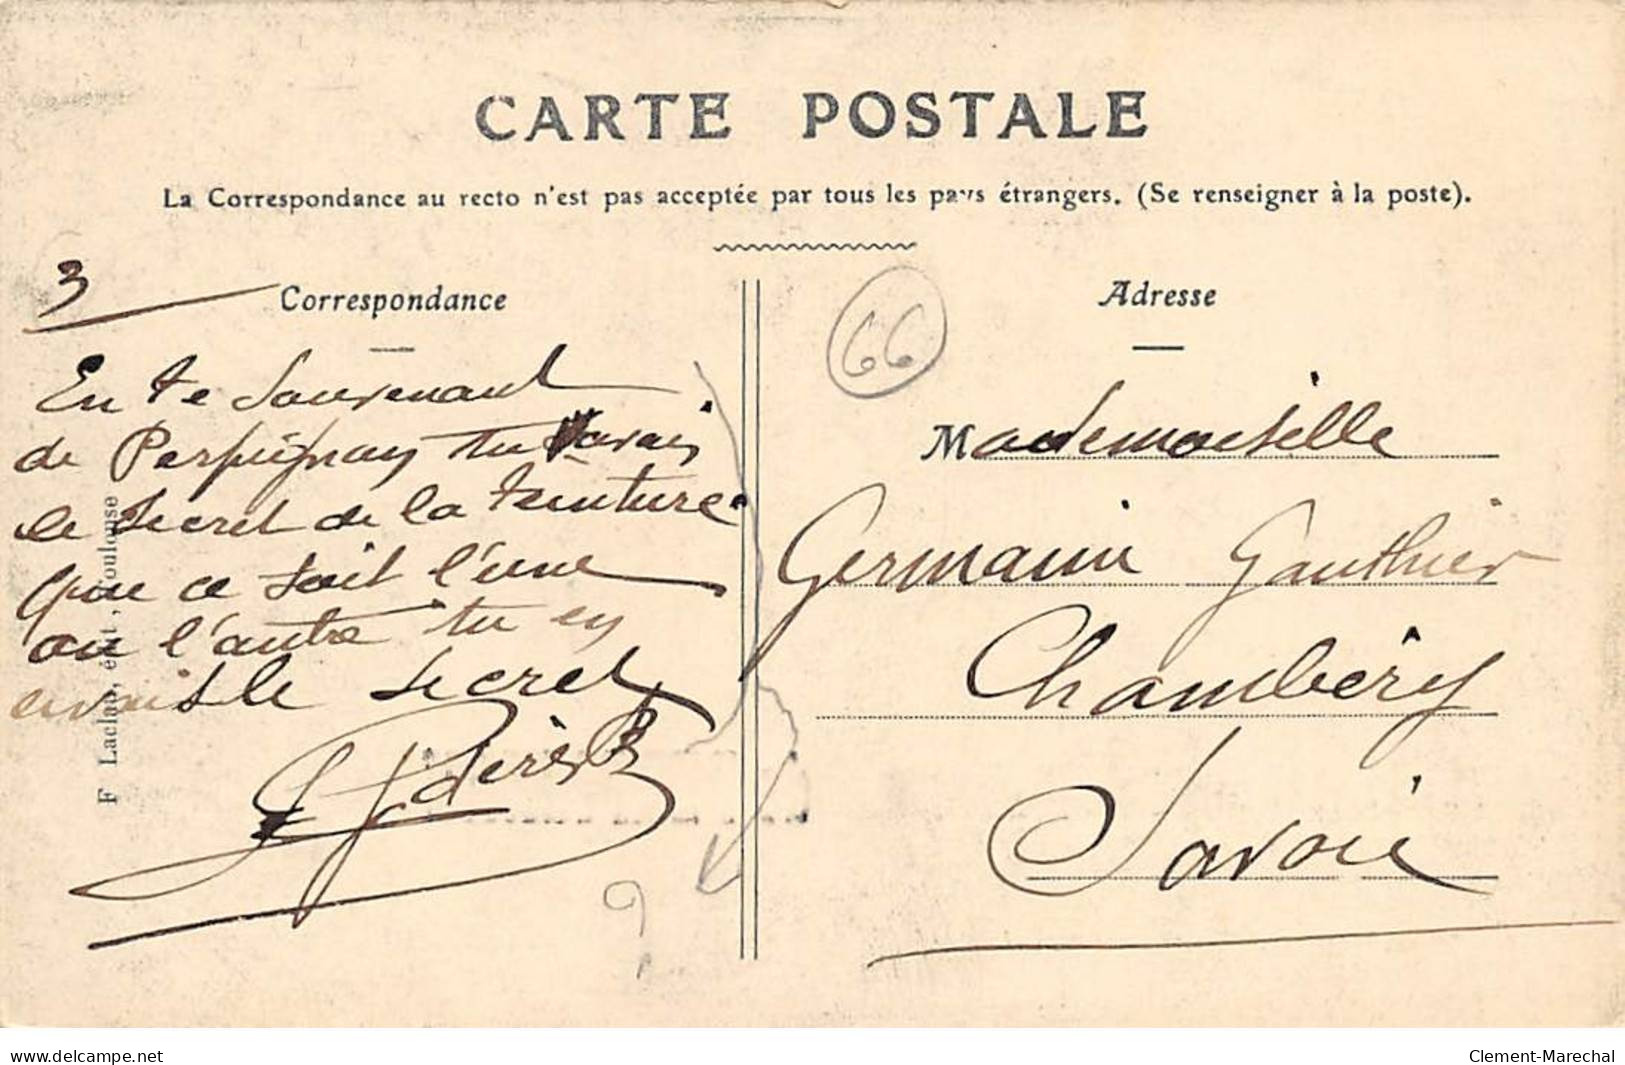 CARTE POSTALE
La Correspondance au recto n'est pas acceptée par tous les pays étrangers. (Se renseigner à la poste).
3
Correspondance
En te souvenant
de Perpignan tu avais
le secret de la teinture
que ce soit l'une
ou l'autre tu en
avais le secret
F Laclau, édit., Toulouse
66
Adresse
Mademoiselle
Germain Gauthier
Chambéry
Savoie
www.delcampe.net
Clement-Marechal